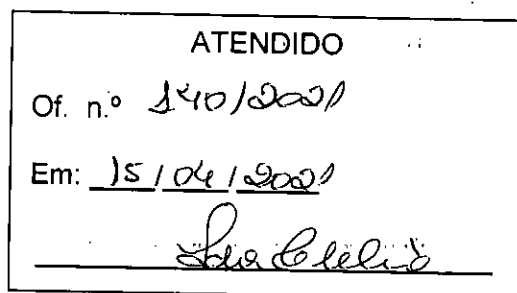 ATENDIDO
Of. n.º 140/2021
Em: 15/04/2021